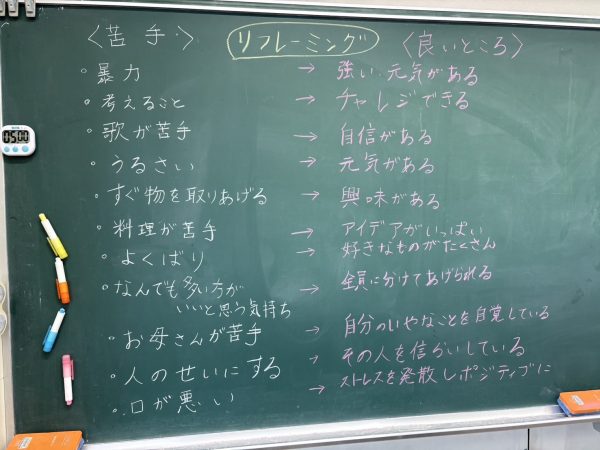 〈苦手〉 リフレーミング 〈良いところ〉
・暴力 → 強い、元気がある
・考えること → チャレジできる
・歌が苦手 → 自信がある
・うるさい → 元気がある
・すぐ物を取りあげる → 興味がある
・料理が苦手 → アイデアがいっぱい
・よくばり → 好きなものがたくさん
・なんでも多い方が → 全員に分けてあげられる
いいと思う気持ち
・お母さんが苦手 → 自分のいやなことを自覚している
・人のせいにする → その人を信らいしている
・口が悪い → ストレスを発散しポジティブに